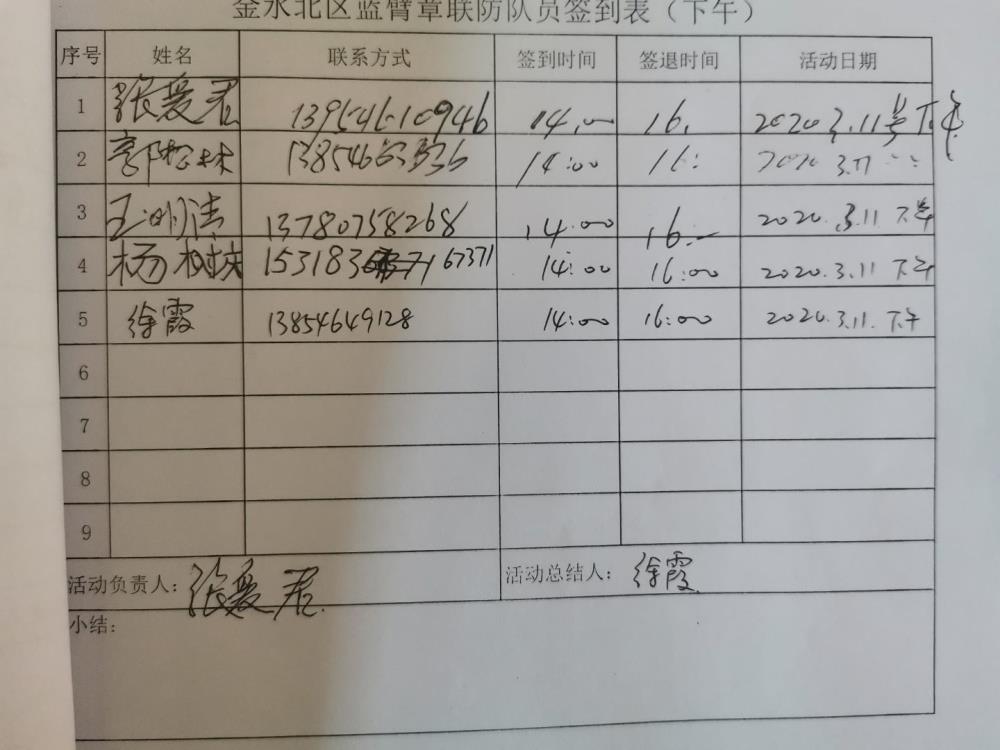 金水北区蓝臂章联防队员签到表（下午）
序号 姓名 联系方式 签到时间 签退时间 活动日期
1 张爱君 13954610946 14.00 16. 2020 3.11号下午
2 郭松林 14:00 16: 2020 3.11
3 王明洁 13780758268 14.00 16.- 2020.3.11 下午
4 杨树栋 15318367371 14:00 16:00 2020.3.11 下午
5 徐霞 13854649128 14:00 16:00 2020.3.11.下午
6
7
8
9
活动负责人：张爱君 活动总结人：徐霞
小结：